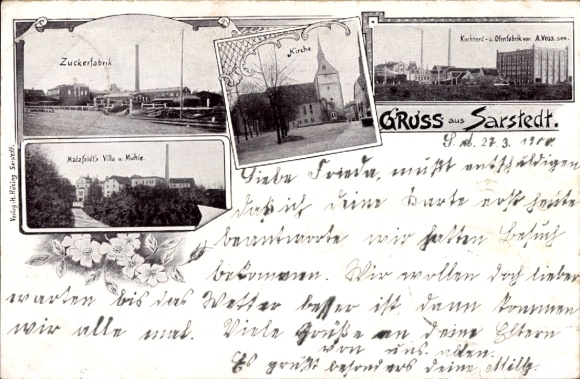 Zuckerfabrik
Kirche
Kochherd- u. Ofenfabrik von A. Voss. sen.
GRUSS aus Sarstedt.
Malzfeldt's Villa u. Mühle.
Verlag H. Sarstedt.
27.3.
Liebe Frieda, mußt entschuldigen
daß ich deine Karte erst heute
beantworte wir hatten Besuch
bekommen. Wir wollen doch lieber
warten bis das Wetter besser ist, dann kommen
wir alle mal. Viele Grüße an deine Eltern
von uns allen.
Es grüßt besonders deine Milly.